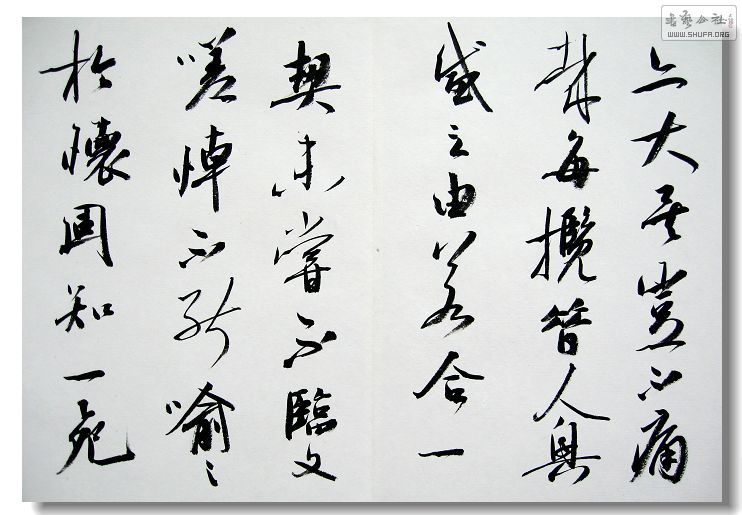 亦大矣豈不痛
哉每攬昔人興
感之由若合一
契未嘗不臨文
嗟悼不能喻之
於懷固知一死
书艺公社
WWW.SHUFA.ORG